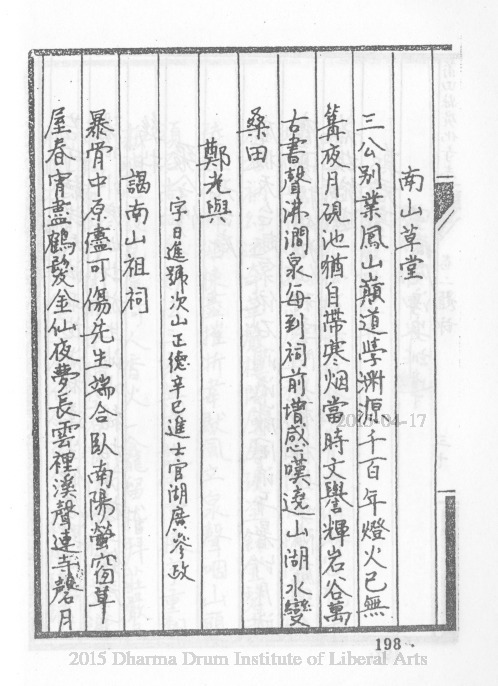 南山草堂
三公別業鳳山巔道學淵源千百年燈火已無
篝夜月硯池猶自帶寒烟當時文譽輝岩谷萬
古書聲沸澗泉每到祠前增感嘆遶山湖水變
桑田
鄭光與
字日進號次山正德辛巳進士官湖廣參政
謁南山祖祠
暴骨中原儘可傷先生端合臥南陽螢窗草
屋春宵盡鶴髮金仙夜夢長雲裡溪聲連寺磬月
198
2015-04-17
2015 Dharma Drum Institute of Liberal Arts